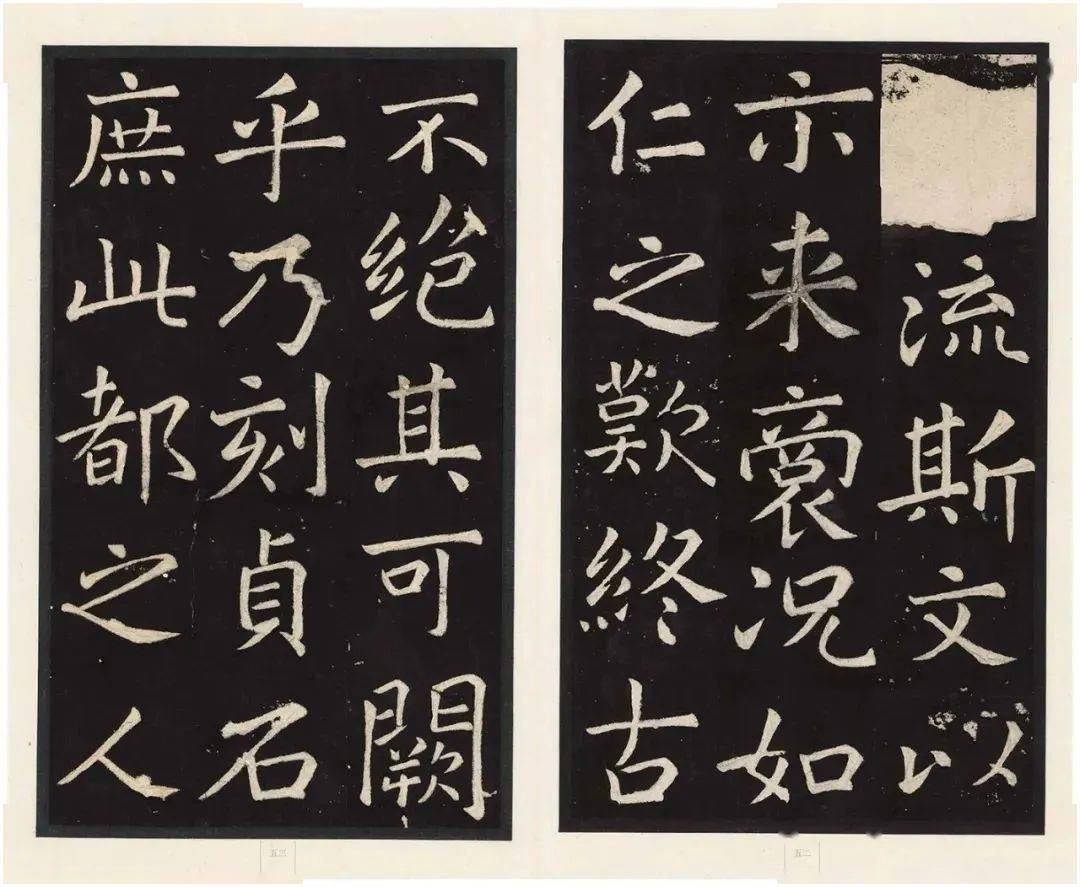 流斯文以
示来裔况如
仁之歎終古
五二
不絶其可闕
乎乃刻貞石
庶此都之人
五三